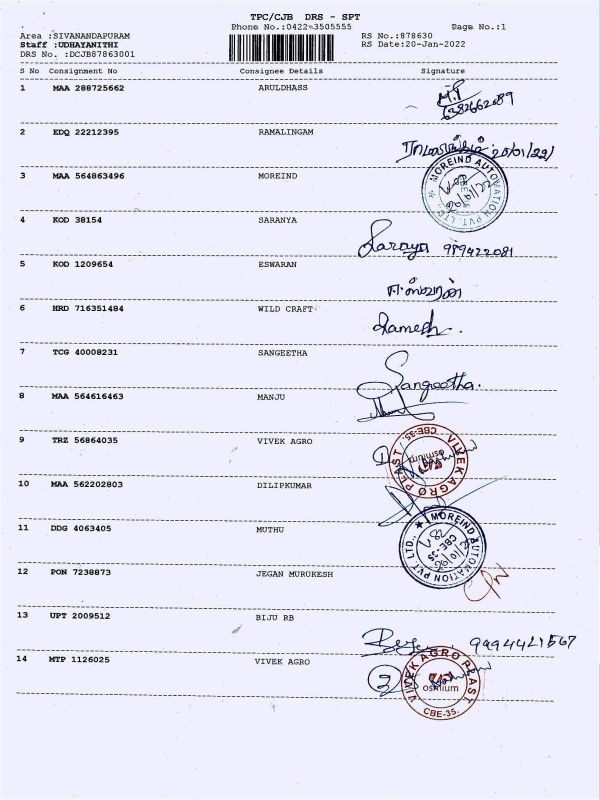 TPC/CJB DRS - SPT
Phone No.:0422-3505555 Page No.:1
Area :SIVANANDAPURAM RS No.:878630
Staff :UDHAYANITHI RS Date:20-Jan-2022
DRS No. :DCJB87863001
S No Consignment No Consignee Details Signature
1 MAA 288725662 ARULDHASS
2 EDQ 22212395 RAMALINGAM
ராமலிங்கம் 20/01/22/
3 MAA 564863496 MOREIND
MOREIND AUTOMATION PVT. LTD
4 KOD 38154 SARANYA
Saranya 989422081
5 KOD 1209654 ESWARAN
ஈஸ்வரன்
6 HRD 716351484 WILD CRAFT
Ramesh.
7 TCG 40008231 SANGEETHA
Sangeetha.
8 MAA 564616463 MANJU
9 TRZ 56864035 VIVEK AGRO
VIVEK AGRO PLAST, CBE-35. osmium
10 MAA 562202803 DILIPKUMAR
11 DDG 4063405 MUTHU
MOREIND AUTOMATION PVT LTD., CBE-35
12 PON 7238873 JEGAN MURUKESH
13 UPT 2009512 BIJU RB
9994421567
14 MTP 1126025 VIVEK AGRO
2 VIVEK AGRO PLAST osmium CBE-35.